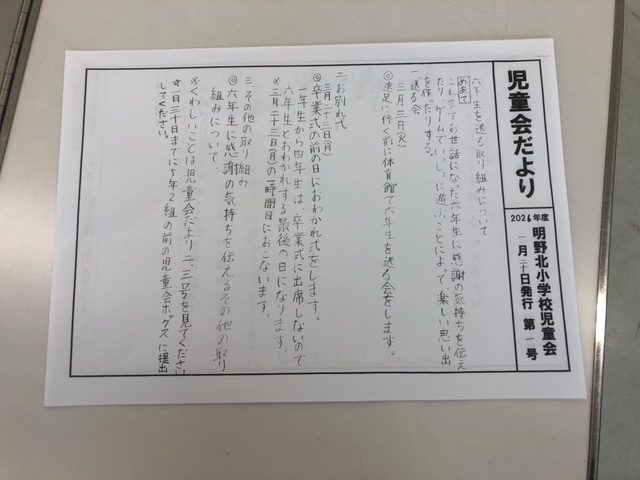 児童会だより
2026年度
明野北小学校児童会
一月二十日発行 第一号
六年生を送る取り組みについて
めあて
これまでお世話になった六年生に感謝の気持ちを伝え
たり、ゲームでいっしょに遊ぶことによって、楽しい思い出
を作ったりする。
一 送る会
三月三日(火)
◎遠足に行く前に体育館で六年生を送る会をします。
二 お別れ式
三月二十三日(月)
◎卒業式の前の日におわかれ式をします。
一年生から四年生は、卒業式に出席しないので
六年生とおわかれする最後の日になります。
※三月二十三日(月)の一時間目におこないます。
三 その他の取り組み
◎六年生に感謝の気持ちを伝えるその他の取り
組みについて
※くわしいことは児童会だより二、三号を見てください
☆一月三十日までに5年2組の前の児童会ボックスに提出
してください。